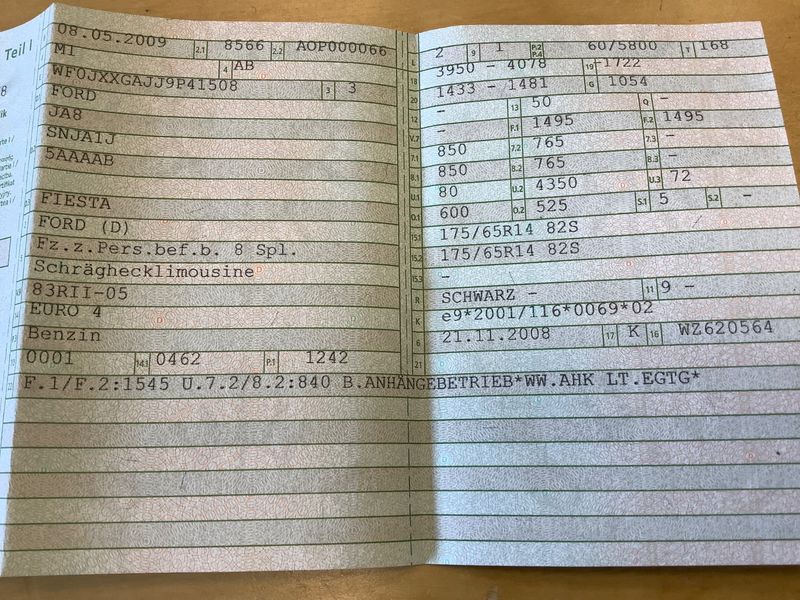 Teil I
08.05.2009 2.1 8566 2.2 AOP000066
M1 4 AB
WF0JXXGAJJ9P41508 3 3
FORD
JA8
SNJA1J
5AAAAB
FIESTA
FORD (D)
Fz.z.Pers.bef.b. 8 Spl.
Schräghecklimousine
83RII-05
EURO 4
Benzin
0001 14.1 0462 P.1 1242
L 2 9 1 P.2 P.4 60/5800 T 168
18 3950 - 4078 19 -1722
20 1433 - 1481 G 1054
12 - 13 50 Q -
V.7 - F.1 1495 F.2 1495
7.1 850 7.2 765 7.3 -
8.1 850 8.2 765 8.3 -
U.1 80 U.2 4350 U.3 72
O.1 600 O.2 525 S.1 5 S.2 -
15.1 175/65R14 82S
15.2 175/65R14 82S
15.3 -
R SCHWARZ - 11 9 -
K e9*2001/116*0069*02
6 21.11.2008 17 K 16 WZ620564
21
F.1/F.2:1545 U.7.2/8.2:840 B.ANHÄNGEBETRIEB*WW.AHK LT.EGTG*